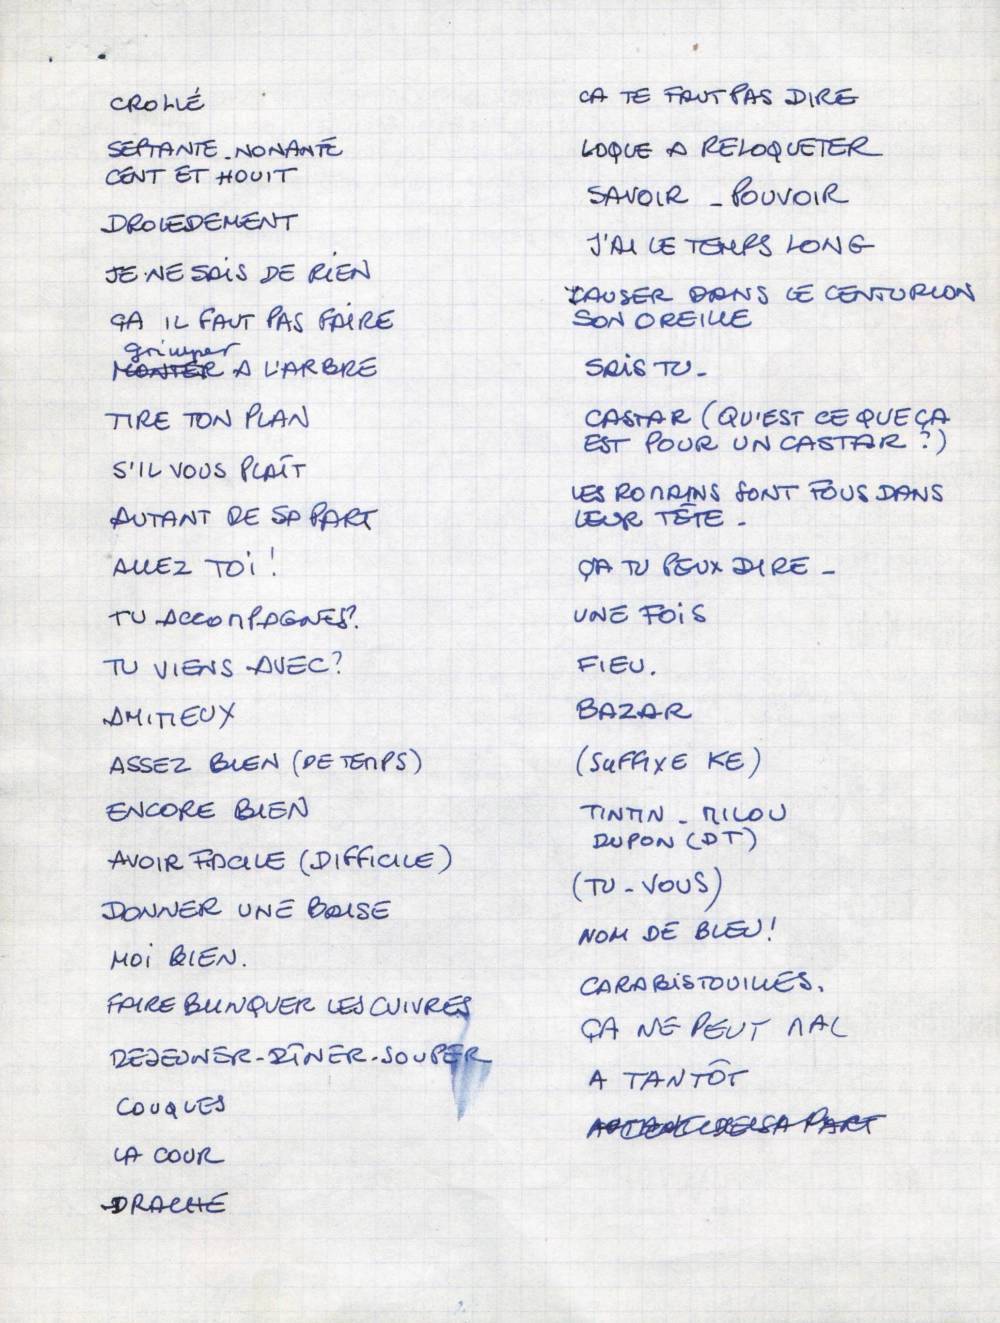 CROLLÉ
SEPTANTE - NONANTE
CENT ET HOUIT
DROLEDEMENT
JE NE SAIS DE RIEN
ÇA IL FAUT PAS FAIRE
grimper
MONTER A L'ARBRE
TIRE TON PLAN
S'IL VOUS PLAÎT
AUTANT DE SA PART
ALLEZ TOI !
TU ACCOMPAGNES ?
TU VIENS AVEC ?
AMITIEUX
ASSEZ BIEN (DE TEMPS)
ENCORE BIEN
AVOIR FACILE (DIFFICILE)
DONNER UNE BAISE
MOI BIEN.
FAIRE BLINQUER LES CUIVRES
DEJEUNER - DÎNER - SOUPER
COUQUES
LA COUR
DRACHE
CA TE FAUT PAS DIRE
LOQUE A RELOQUETER
SAVOIR - POUVOIR
J'AI LE TEMPS LONG
CAUSER DANS LE CENTURION
SON OREILLE
SAIS TU -
CASTAR (QU'EST CE QUE ÇA
EST POUR UN CASTAR ?)
LES ROMAINS SONT FOUS DANS
LEUR TÊTE -
ÇA TU PEUX DIRE -
UNE FOIS
FIEU.
BAZAR
(SUFFIXE KE)
TINTIN - MILOU
DUPON (DT)
(TU - VOUS)
NOM DE BLEU !
CARABISTOUILLES.
ÇA NE PEUT MAL
A TANTÔT
SA PART